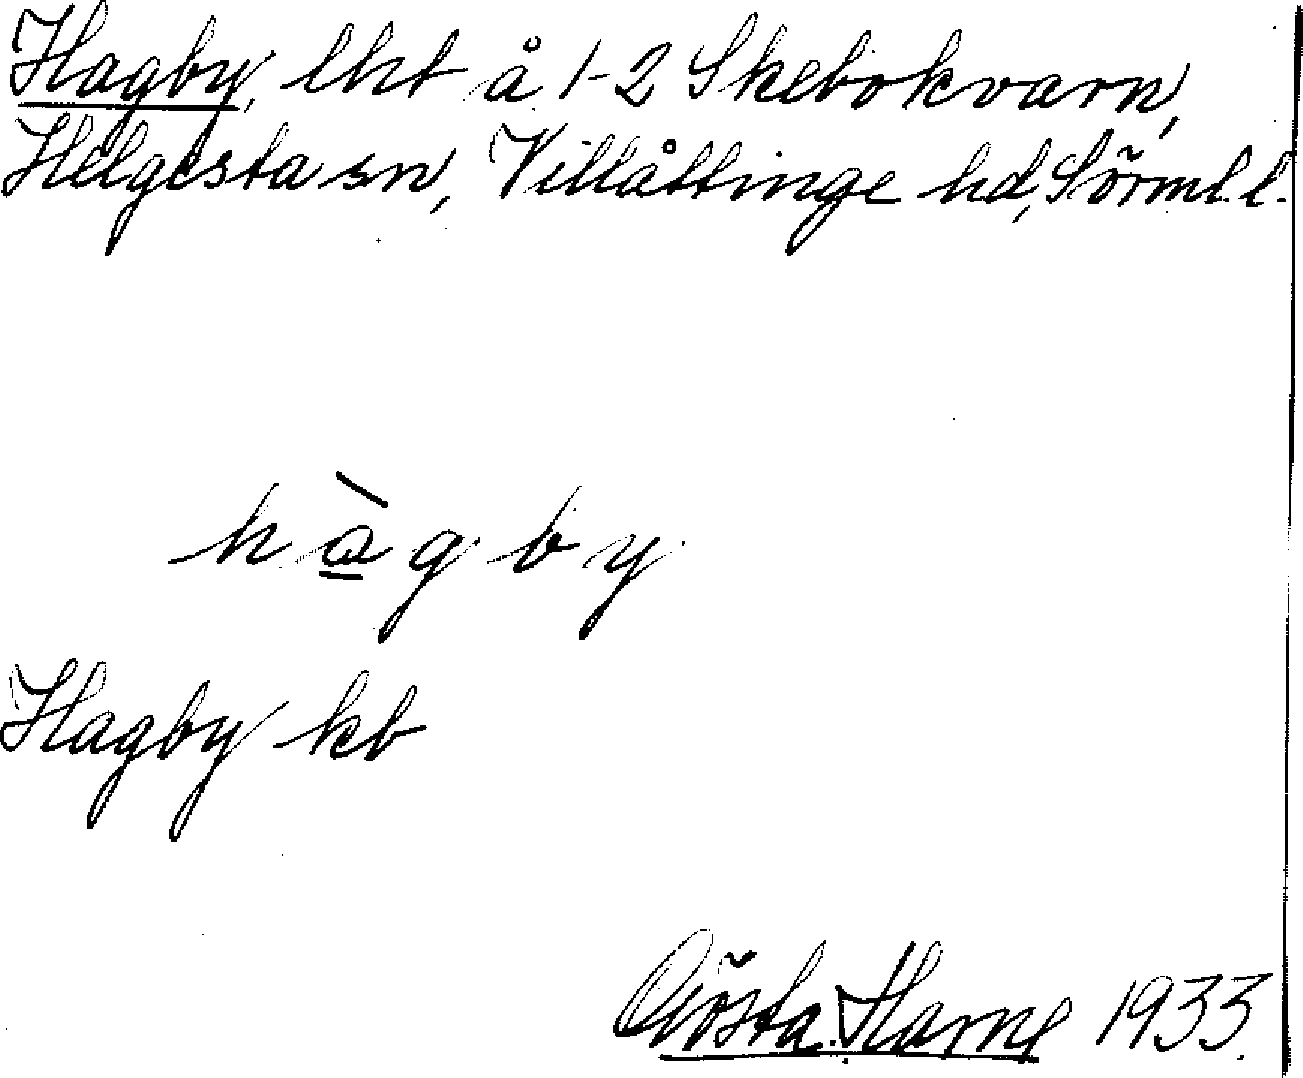 Hagby, lht å 1-2 Skebokvarn,
Helgesta sn, Villåttinge hd, Sörml. l.
hàgby
Hagby kb
Gösta Harne 1933.